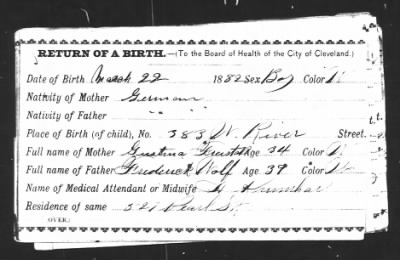 RETURN OF A BIRTH.—(To the Board of Health of the City of Cleveland.)
Date of Birth March 22 1882 Sex Boy Color W
Nativity of Mother German
Nativity of Father " "
Place of Birth (of child), No. 383 W. River Street.
Full name of Mother Age 34 Color W
Full name of Father Frederick Wolf Age 39 Color
Name of Medical Attendant or Midwife
Residence of same 521 Pearl St.
OVER: